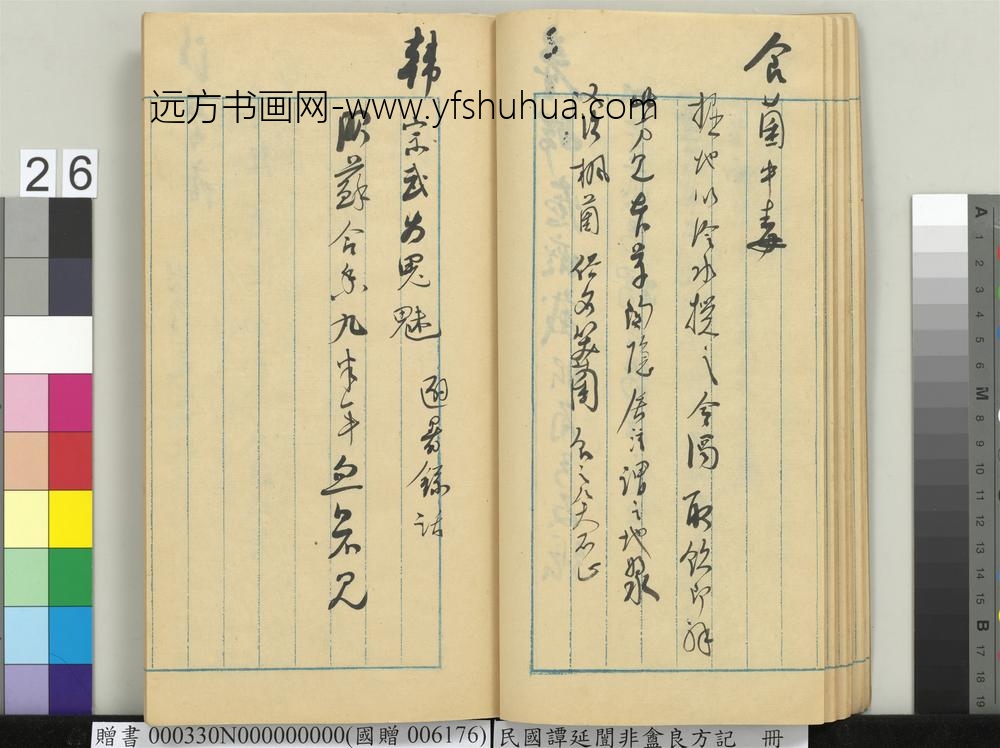 食菌中毒
掘地以冷水攪之令濁 取飲即解
其方見本草陶隱居注謂之地漿
又治楓菌 俗名笑菌 食之笑不止
韓宗武為鬼魅 避暑錄話
服蘇合香丸半年 無所見
远方书画网-www.yfshuhua.com
26
A 1 2 3 4 5 6 M 8 9 10 11 12 13 14 15 B 17 18 19
贈書 000330N000000000(國贈 006176)
民國譚延闓非盦良方記 冊